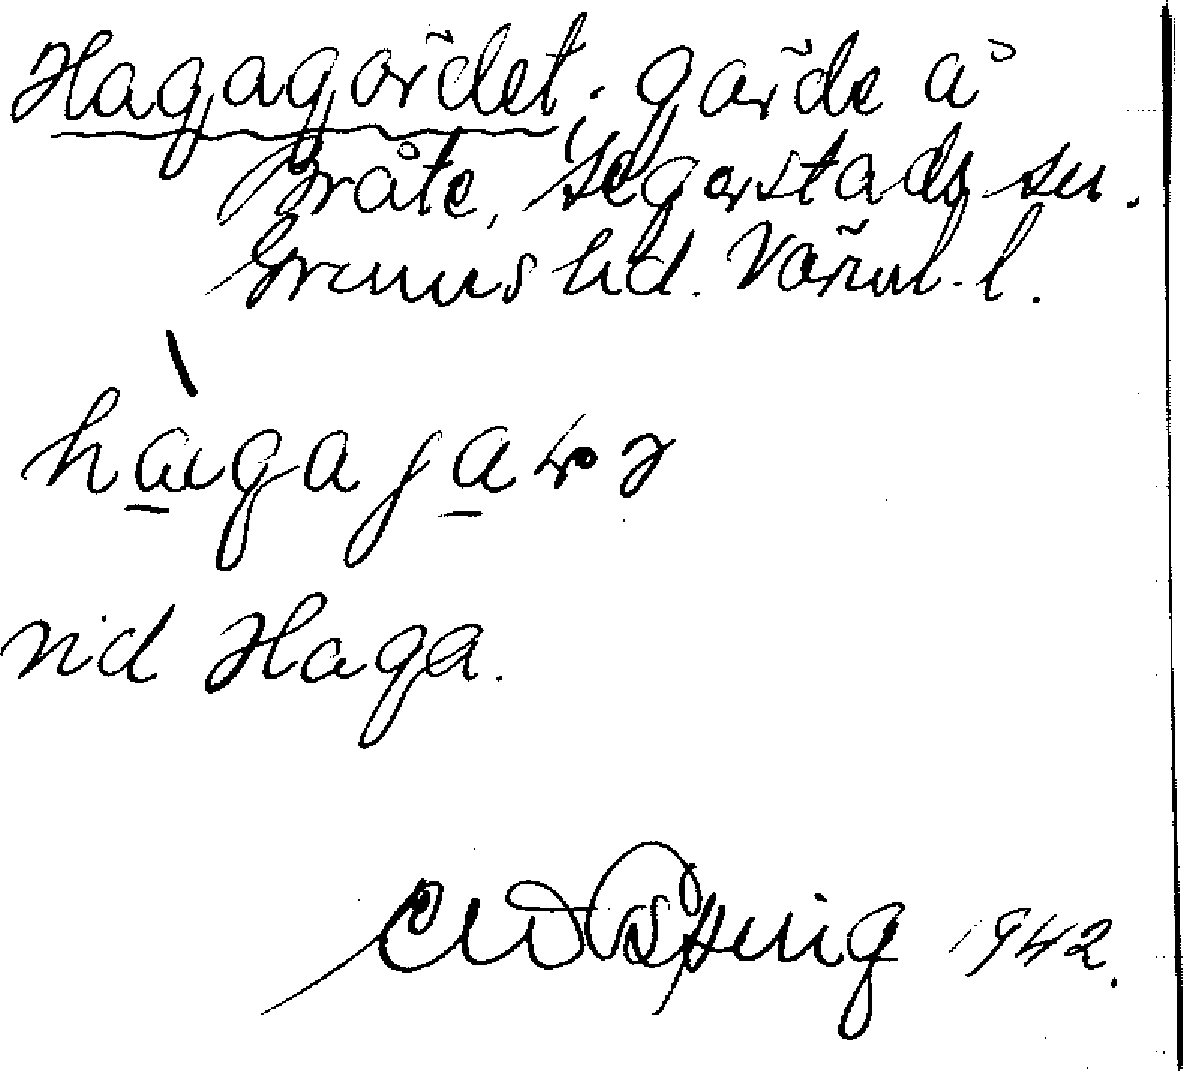 Hagagärdet; gärde å
Bråte, Segerstads sn.
Grums hd. Värml. l.
vid Haga.
1942.